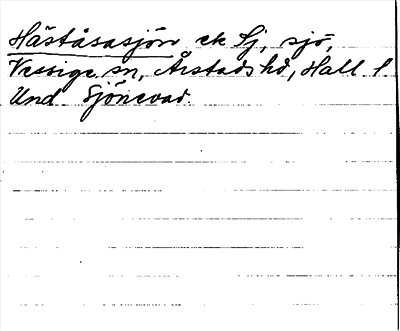 Häståsasjön ek Sj, sjö,
Vessige sn, Årstads hd, Hall. l.
Und Sjönevad.